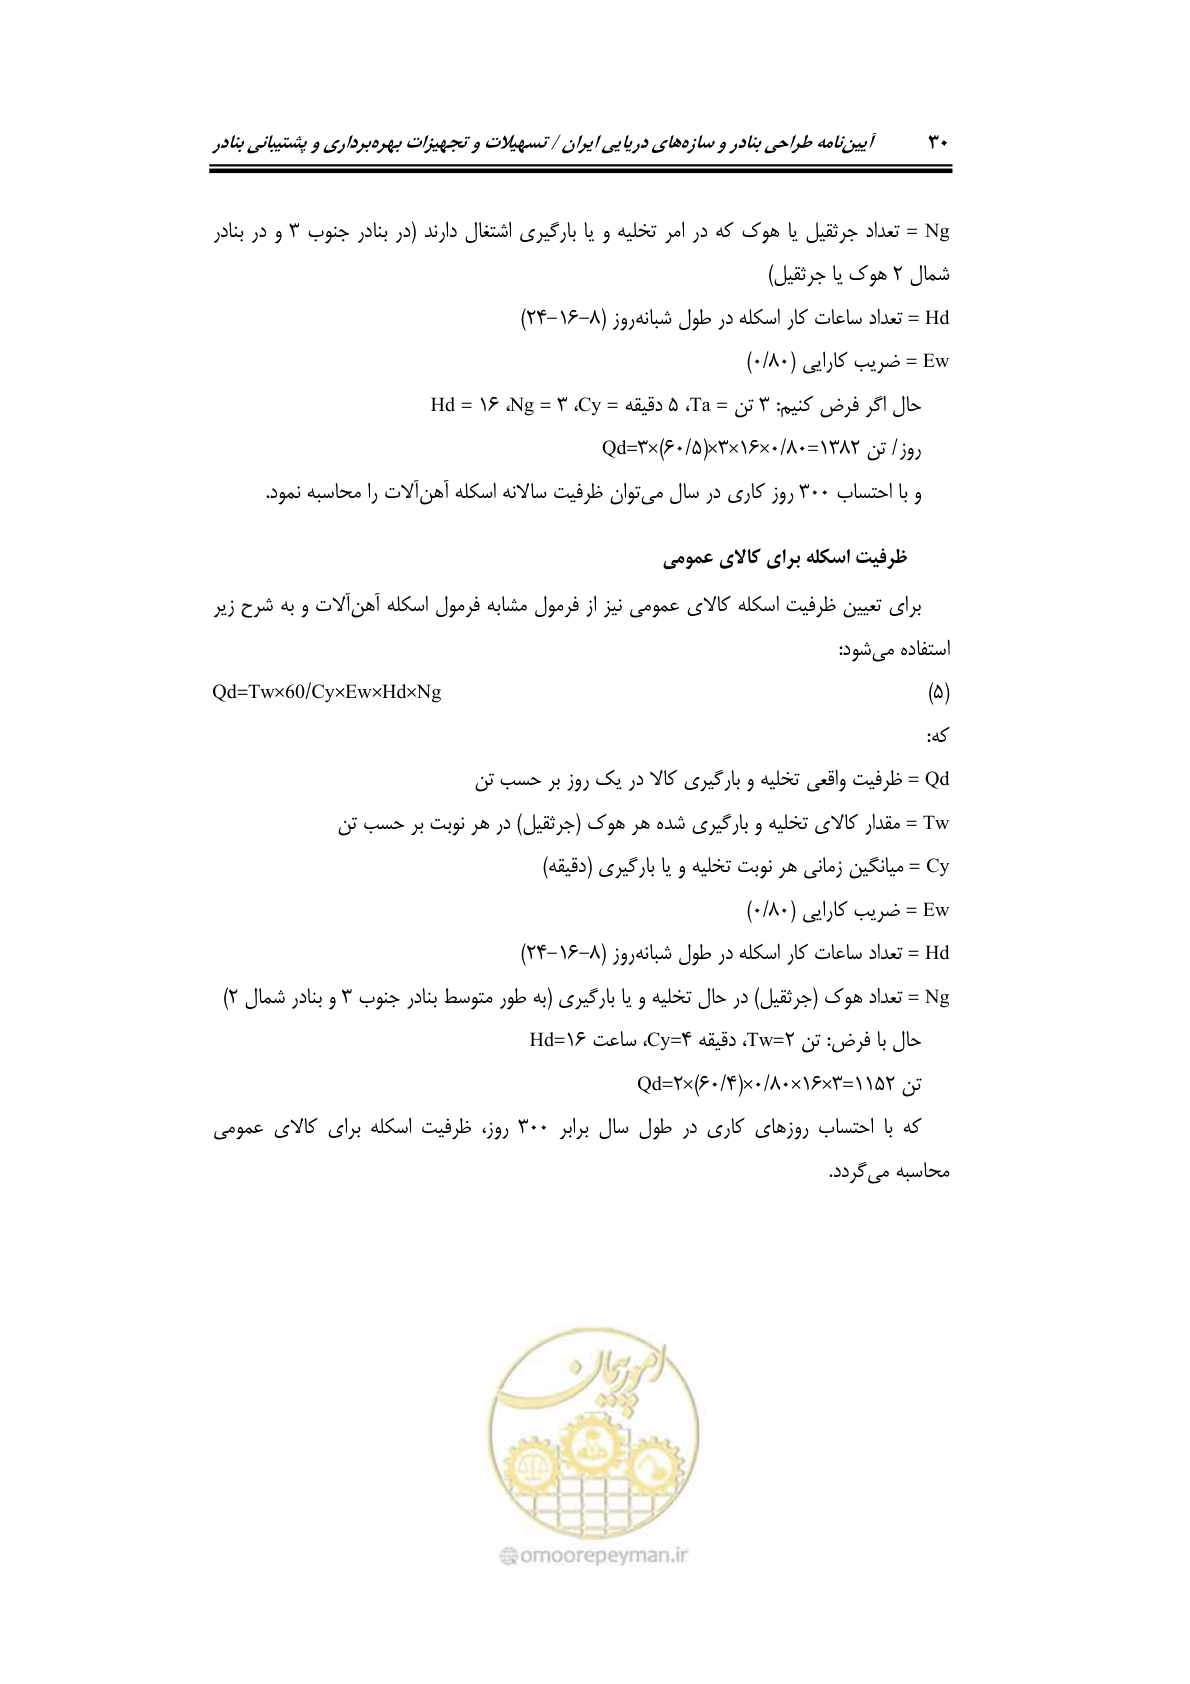 ۳۰ آیین‌نامه طراحی بنادر و سازه‌های دریایی ایران / تسهیلات و تجهیزات بهره‌برداری و پشتیبانی بنادر
Ng = تعداد جرثقیل یا هوک که در امر تخلیه و یا بارگیری اشتغال دارند (در بنادر جنوب ۳ و در بنادر
شمال ۲ هوک یا جرثقیل)
Hd = تعداد ساعات کار اسکله در طول شبانه‌روز (۸–۱۶–۲۴)
Ew = ضریب کارایی (۰/۸۰)
حال اگر فرض کنیم: ۳ تن = Ta، ۵ دقیقه = Cy، Ng = ۳، Hd = ۱۶
روز/ تن Qd=۳×(۶۰/۵)×۳×۱۶×۰/۸۰=۱۳۸۲
و با احتساب ۳۰۰ روز کاری در سال می‌توان ظرفیت سالانه اسکله آهن‌آلات را محاسبه نمود.
ظرفیت اسکله برای کالای عمومی
برای تعیین ظرفیت اسکله کالای عمومی نیز از فرمول مشابه فرمول اسکله آهن‌آلات و به شرح زیر
استفاده می‌شود:
(۵) Qd=Tw×60/Cy×Ew×Hd×Ng
که:
Qd = ظرفیت واقعی تخلیه و بارگیری کالا در یک روز بر حسب تن
Tw = مقدار کالای تخلیه و بارگیری شده هر هوک (جرثقیل) در هر نوبت بر حسب تن
Cy = میانگین زمانی هر نوبت تخلیه و یا بارگیری (دقیقه)
Ew = ضریب کارایی (۰/۸۰)
Hd = تعداد ساعات کار اسکله در طول شبانه‌روز (۸–۱۶–۲۴)
Ng = تعداد هوک (جرثقیل) در حال تخلیه و یا بارگیری (به طور متوسط بنادر جنوب ۳ و بنادر شمال ۲)
حال با فرض: تن Tw=۲، دقیقه Cy=۴، ساعت Hd=۱۶
تن Qd=۲×(۶۰/۴)×۰/۸۰×۱۶×۳=۱۱۵۲
که با احتساب روزهای کاری در طول سال برابر ۳۰۰ روز، ظرفیت اسکله برای کالای عمومی
محاسبه می‌گردد.
امور پیمان
omoorepeyman.ir